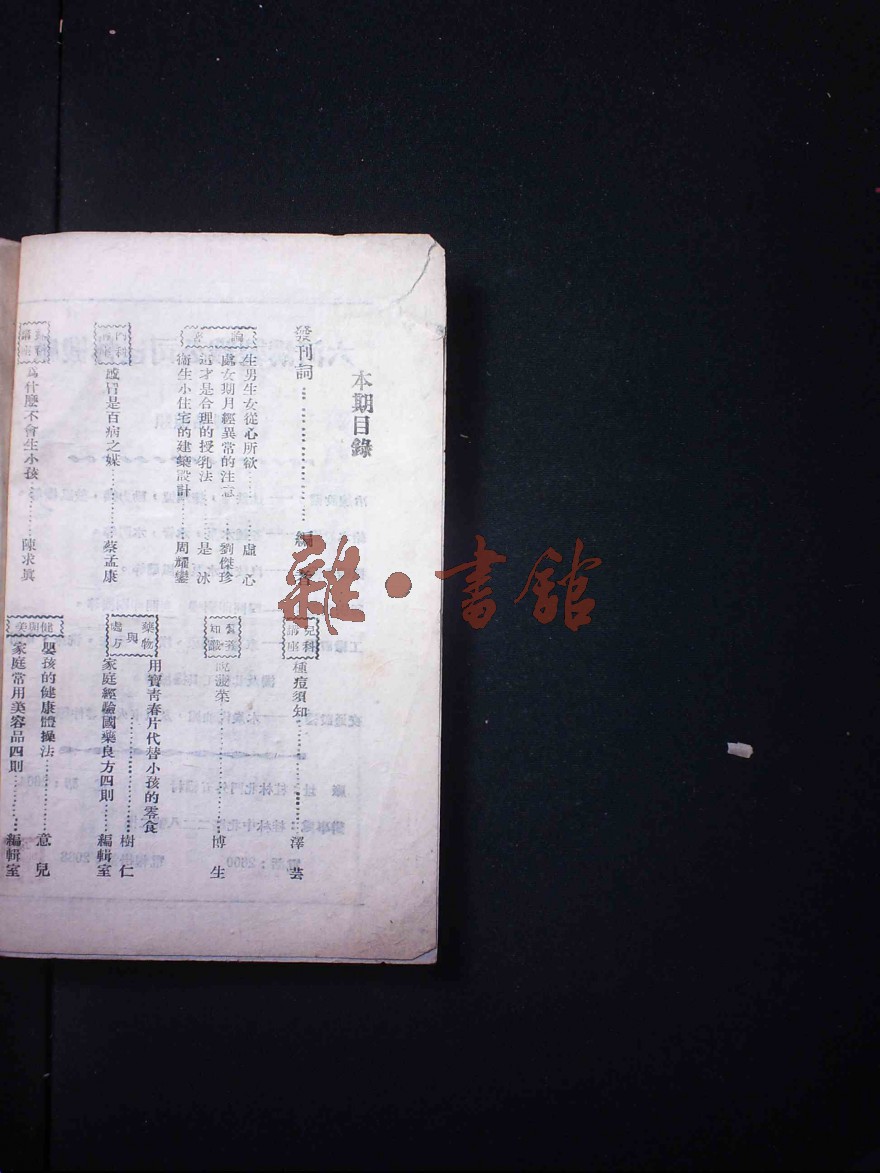 本期目錄
發刊詞………………編者
論著
生男生女從心所欲……虛心
處女期月經異常的注意…劉傑珍
這才是合理的授乳法……是冰
衛生小住宅的建築設計…周耀鑾
內科
感冒是百病之媒………蔡孟康
講座
為什麼不會生小孩………陳求真
兒科講座
種痘須知………………澤芸
營養知識
菠菜………………博生
藥物與處方
用寶青春片代替小孩的零食………………樹仁
家庭經驗國藥良方四則……編輯室
健與美
嬰孩的健康體操法………意兒
家庭常用美容品四則………編輯室
雜·書館